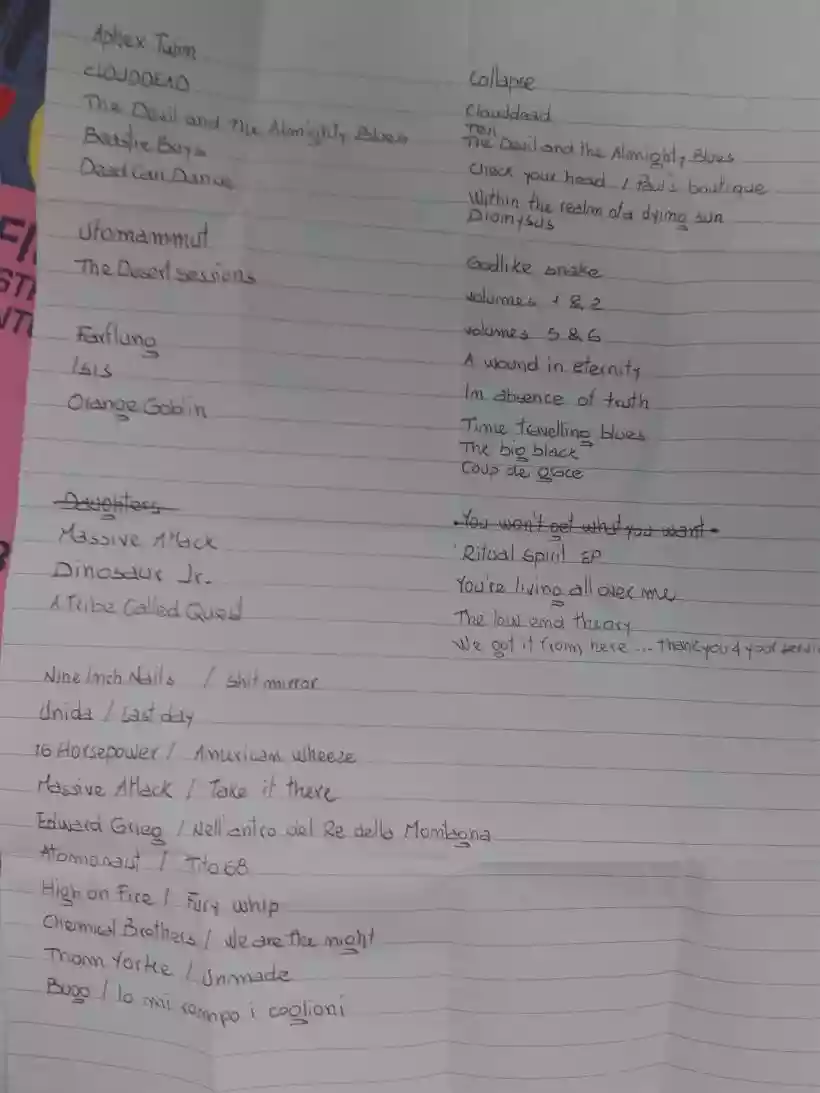 Aphex Twin
Collapse
CLOUDDEAD
Clouddead
Ten
The Devil and The Almighty Blues
The Devil and the Almighty Blues
Beastie Boys
Check your head / Paul's boutique
Dead Can Dance
Within the realm of a dying sun
Dionysus
Ufomammut
Godlike snake
The Desert sessions
volumes 1 & 2
volumes 5 & 6
Farflung
A wound in eternity
ISIS
In absence of truth
Orange Goblin
Time travelling blues
The big black
Coup de grace
Daughters
You won't get what you want
Massive Attack
Ritual Spirit EP
Dinosaur Jr.
You're living all over me
A Tribe Called Quest
The low end theory
We got it from here ... thank you 4 your
Nine Inch Nails / Shit mirror
Unida / Last day
16 Horsepower / American wheeze
Massive Attack / Take it there
Edward Grieg / Nell'antro del Re della Montagna
Atomonaut / Tito 68
High on Fire / Fury whip
Chemical Brothers / We are the night
Thom Yorke / Unmade
Bugo / Io mi rompo i coglioni